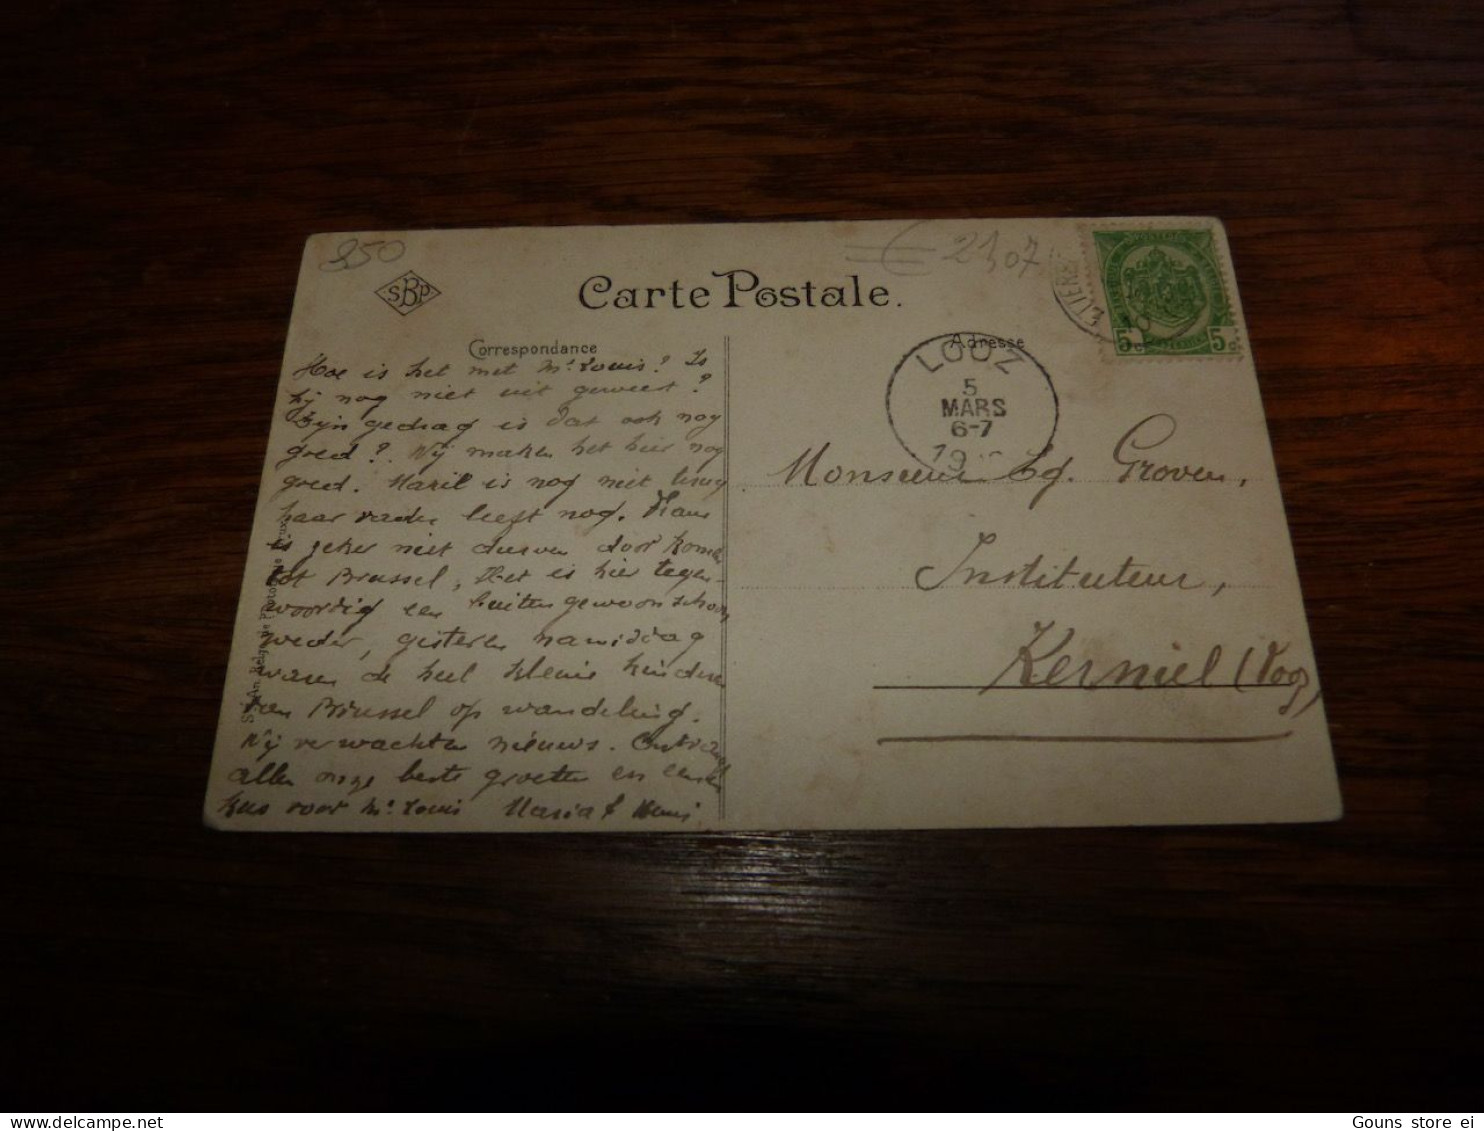 850
SBP
Carte Postale.
€ 21,07
Correspondance
Adresse
LOOZ
5
MARS
6-7
19
5c 5c
Hoe is het met Mr Louis? Is
hij nog niet uit geweest?
Zijn gedrag is dat ook nog
goed? Wij maken het hier nog
goed. Maril is nog niet terug
haar vader leeft nog. Frans
is zeker niet durven door komen
tot Brussel, Het is hier tegen-
woordig een buitengewoon schoon
weder, gisteren namiddag
waren de heel kleine kinderen
van Brussel op wandeling.
Wij verwachten nieuws. Ontvangt
allen onze beste groeten en eenen
kus voor Mr Louis Maria &
Monsieur Eg. Groven,
Instituteur,
Kerniel (Vog)
Sté An. Belge de Phototypie
Gouns store ei